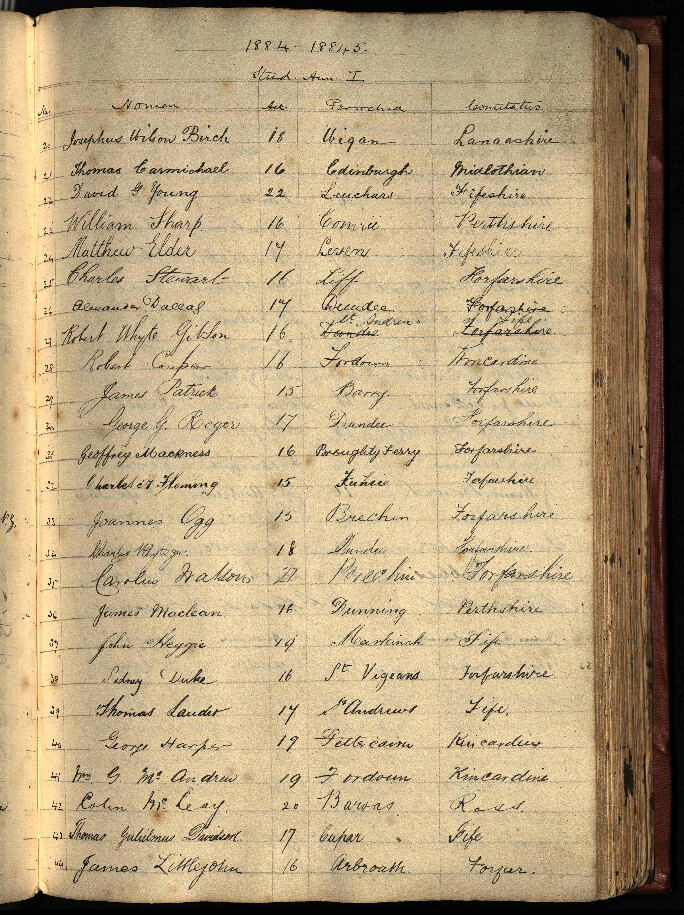 1884 - 18845.
Stud. Ann. I
No. Nomen Aet Parochia Comitatus
20 Josephus Wilson Birch 18 Wigan Lancashire
21 Thomas Carmichael 16 Edinburgh Midlothian
22 David G Young 22 Leuchars Fifeshire
23 William Sharp 16 Comrie Perthshire
24 Matthew Elder 17 Leven Fifeshire
25 Charles Stewart 16 Liff Forfarshire
26 Alexander Dallas 17 Dundee Forfarshire
St Andrews Fife
27 Robert Whyte Gibson 16 Dundee Forfarshire
28 Robert 16 Fordoun Kincardine
29 James Patrick 15 Barry Forfarshire
30 George G. Roger 17 Dundee Forfarshire
31 Geoffrey Mackness 16 Broughty Ferry Forfarshire
32 Charles Fleming 15 Forfarshire
33 Joannes Ogg 15 Brechin Forfarshire
34 Charles 18 Dundee Forfarshire
35 Carolus Watson 21 Brechin Forfarshire
36 James Maclean 16 Dunning Perthshire
37 John Heggie 19 Markinch Fife
38 Sidney Duke 16 St Vigeans Forfarshire
39 Thomas Lauder 17 St Andrews Fife.
40 George Harper 19 Fettercairn Kincardine
41 Wm G. Mc Andrew 19 Fordoun Kincardine
42 Colin Mc Leay. 20 Barvas Ross.
43 Thomas Gulielmus Davidson. 17 Cupar Fife
44 James Littlejohn 16 Arbroath Forfar.